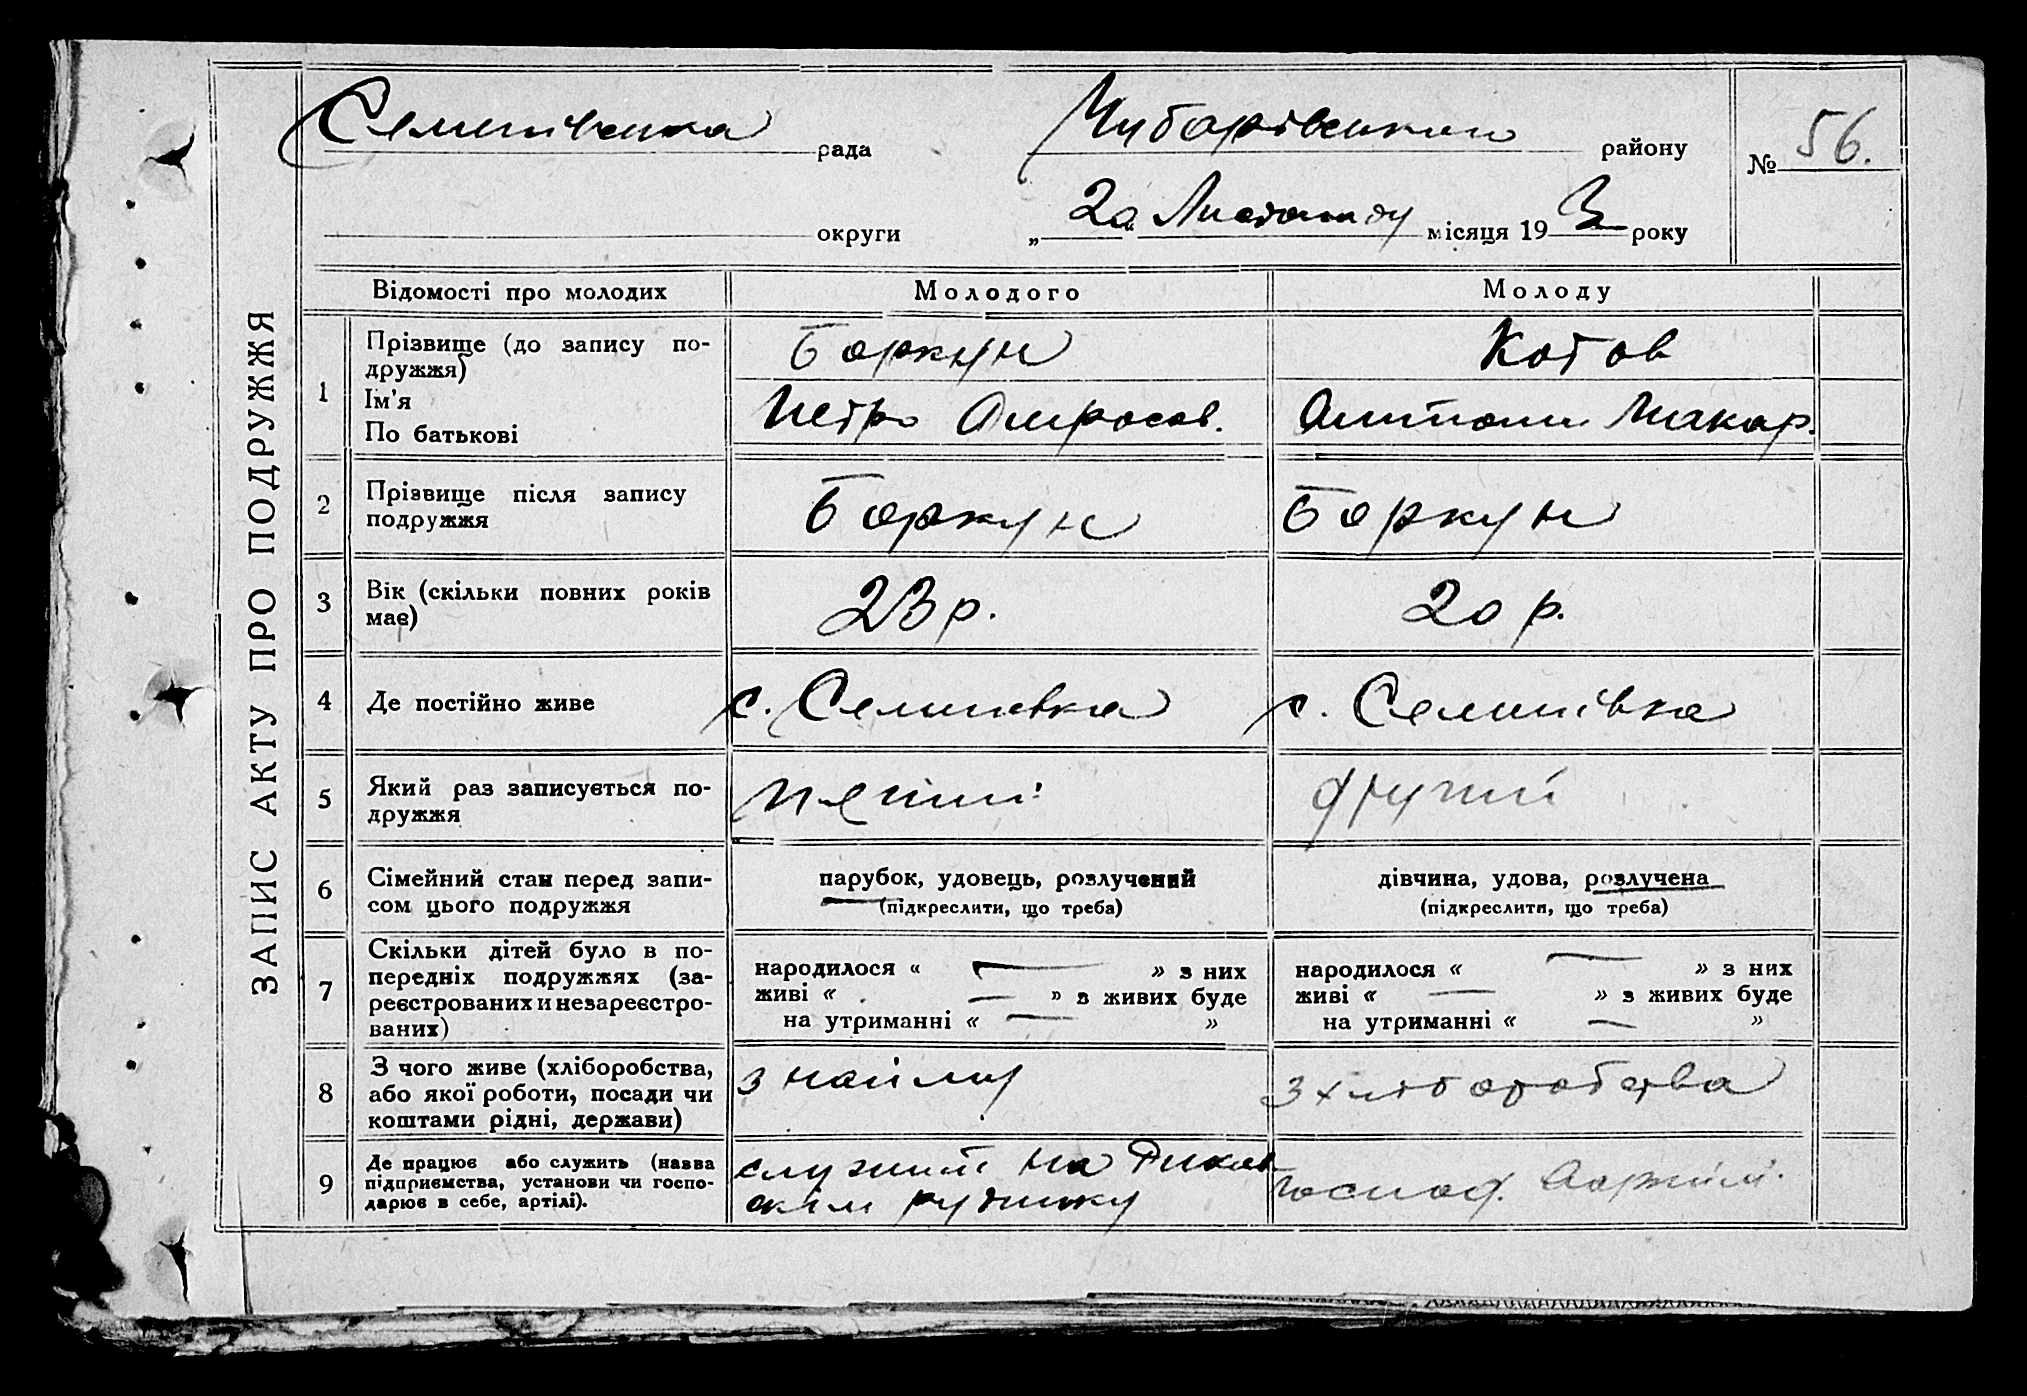 ЗАПИС АКТУ ПРО ПОДРУЖЖЯ
Семенівська рада
Чубарівського району
№ 56.
округи
„20“ Листопаду місяця 193 року
Відомості про молодих
Молодого
Молоду
1
Прізвище (до запису по-
дружжя)
Боркун
Котов
Ім'я
По батькові
Петро Амросов.
Антони Макар.
2
Прізвище після запису
подружжя
Боркун
Боркун
3
Вік (скільки повних років
має)
23 р.
20 р.
4
Де постійно живе
с. Семенівка
с. Семенівка
5
Який раз записується по-
дружжя
другий
6
Сімейний стан перед запи-
сом цього подружжя
парубок, удовець, розлучений
(підкреслити, що треба)
дівчина, удова, розлучена
(підкреслити, що треба)
7
Скільки дітей було в по-
передніх подружжях (за-
реєстрованих и незареєстро-
ваних)
народилося « — » з них
живі « — » з живих буде
на утриманні « — »
народилося « — » з них
живі « — » з живих буде
на утриманні « — »
8
З чого живе (хліборобства,
або якої роботи, посади чи
коштами рідні, держави)
з найму
з хліборобства
9
Де працює або служить (назва
підприємства, установи чи госпо-
дарює в себе, артілі).
служит на
скім руднику
господ.